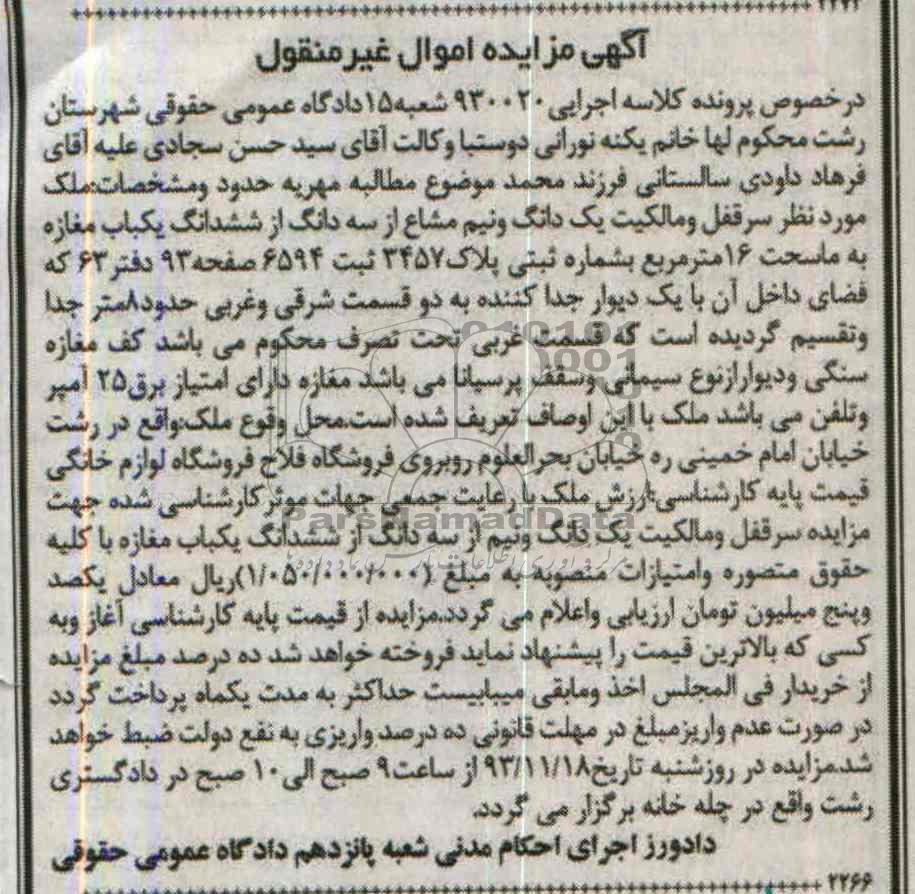 ۲۲۷۲
آگهی مزایده اموال غیرمنقول
درخصوص پرونده کلاسه اجرایی ۹۳۰۰۲۰ شعبه۱۵دادگاه عمومی حقوقی شهرستان
رشت محکوم لها خانم یکته نورانی دوستبا وکالت آقای سید حسن سجادی علیه آقای
فرهاد داودی سالستانی فرزند محمد موضوع مطالبه مهریه حدود ومشخصات:ملک
مورد نظر سرقفل ومالکیت یک دانگ ونیم مشاع از سه دانگ از ششدانگ یکباب مغازه
به ماسحت ۱۶مترمربع بشماره ثبتی پلاک۳۴۵۷ ثبت ۶۵۹۴ صفحه۹۳ دفتر۶۳ که
فضای داخل آن با یک دیوار جدا کننده به دو قسمت شرقی وغربی حدود۸متر جدا
وتقسیم گردیده است که قسمت غربی تحت تصرف محکوم می باشد کف مغازه
سنگی ودیوارازنوع سیمانی وسقف پرسیانا می باشد مغازه دارای امتیاز برق۲۵ آمپر
وتلفن می باشد ملک با این اوصاف تعریف شده است.محل وقوع ملک:واقع در رشت
خیابان امام خمینی ره خیابان بحرالعلوم روبروی فروشگاه فلاح فروشگاه لوازم خانگی
قیمت پایه کارشناسی:ارزش ملک با رعایت جمعی جهات موثرکارشناسی شده جهت
ParsNamadData
مزایده سرقفل ومالکیت یک دانگ ونیم از سه دانگ از ششدانگ یکباب مغازه با کلیه
حقوق متصوره وامتیازات منصوبه به مبلغ (۱/۰۵۰/۰۰۰/۰۰۰)ریال معادل یکصد
وپنج میلیون تومان ارزیابی واعلام می گردد.مزایده از قیمت پایه کارشناسی آغاز وبه
کسی که بالاترین قیمت را پیشنهاد نماید فروخته خواهد شد ده درصد مبلغ مزایده
از خریدار فی المجلس اخذ ومابقی میبایست حداکثر به مدت یکماه پرداخت گردد
در صورت عدم واریزمبلغ در مهلت قانونی ده درصد واریزی به نفع دولت ضبط خواهد
شد.مزایده در روزشنبه تاریخ۹۳/۱۱/۱۸ از ساعت۹ صبح الی۱۰ صبح در دادگستری
رشت واقع در چله خانه برگزار می گردد.
دادورز اجرای احکام مدنی شعبه پانزدهم دادگاه عمومی حقوقی
۲۲۶۶